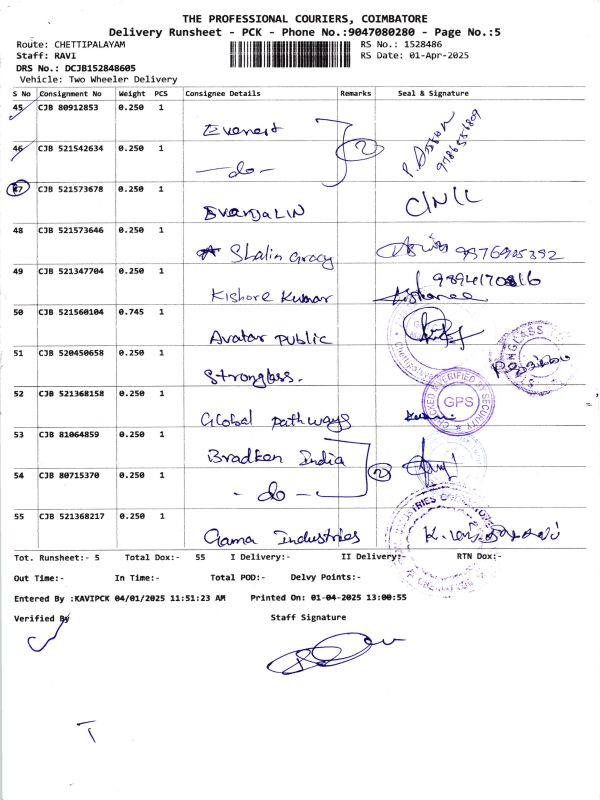 THE PROFESSIONAL COURIERS, COIMBATORE
Delivery Runsheet - PCK - Phone No.:9047080280 - Page No.:5
Route: CHETTIPALAYAM RS No.: 1528486
Staff: RAVI RS Date: 01-Apr-2025
DRS No.: DCJB152848605
Vehicle: Two Wheeler Delivery
S No Consignment No Weight PCS Consignee Details Remarks Seal & Signature
45 CJB 80912853 0.250 1
Everest 2
46 CJB 521542634 0.250 1
-do- 9786556809
47 CJB 521573678 0.250 1
EVANJALIN
48 CJB 521573646 0.250 1
Shalin Gracy 9976905392
49 CJB 521347704 0.250 1 9894170816
Kishore Kumar
50 CJB 521560104 0.745 1
Avatar Public
51 CJB 520450658 0.250 1
Stronglass.
52 CJB 521368158 0.250 1 GPS
Global pathways
53 CJB 81064859 0.250 1
Bradken India 2
54 CJB 80715370 0.250 1
-do-
55 CJB 521368217 0.250 1
Gama Industries
Tot. Runsheet:- 5 Total Dox:- 55 I Delivery:- II Delivery:- RTN Dox:-
Out Time:- In Time:- Total POD:- Delvy Points:-
Entered By :KAVIPCK 04/01/2025 11:51:23 AM Printed On: 01-04-2025 13:00:55
Verified By Staff Signature